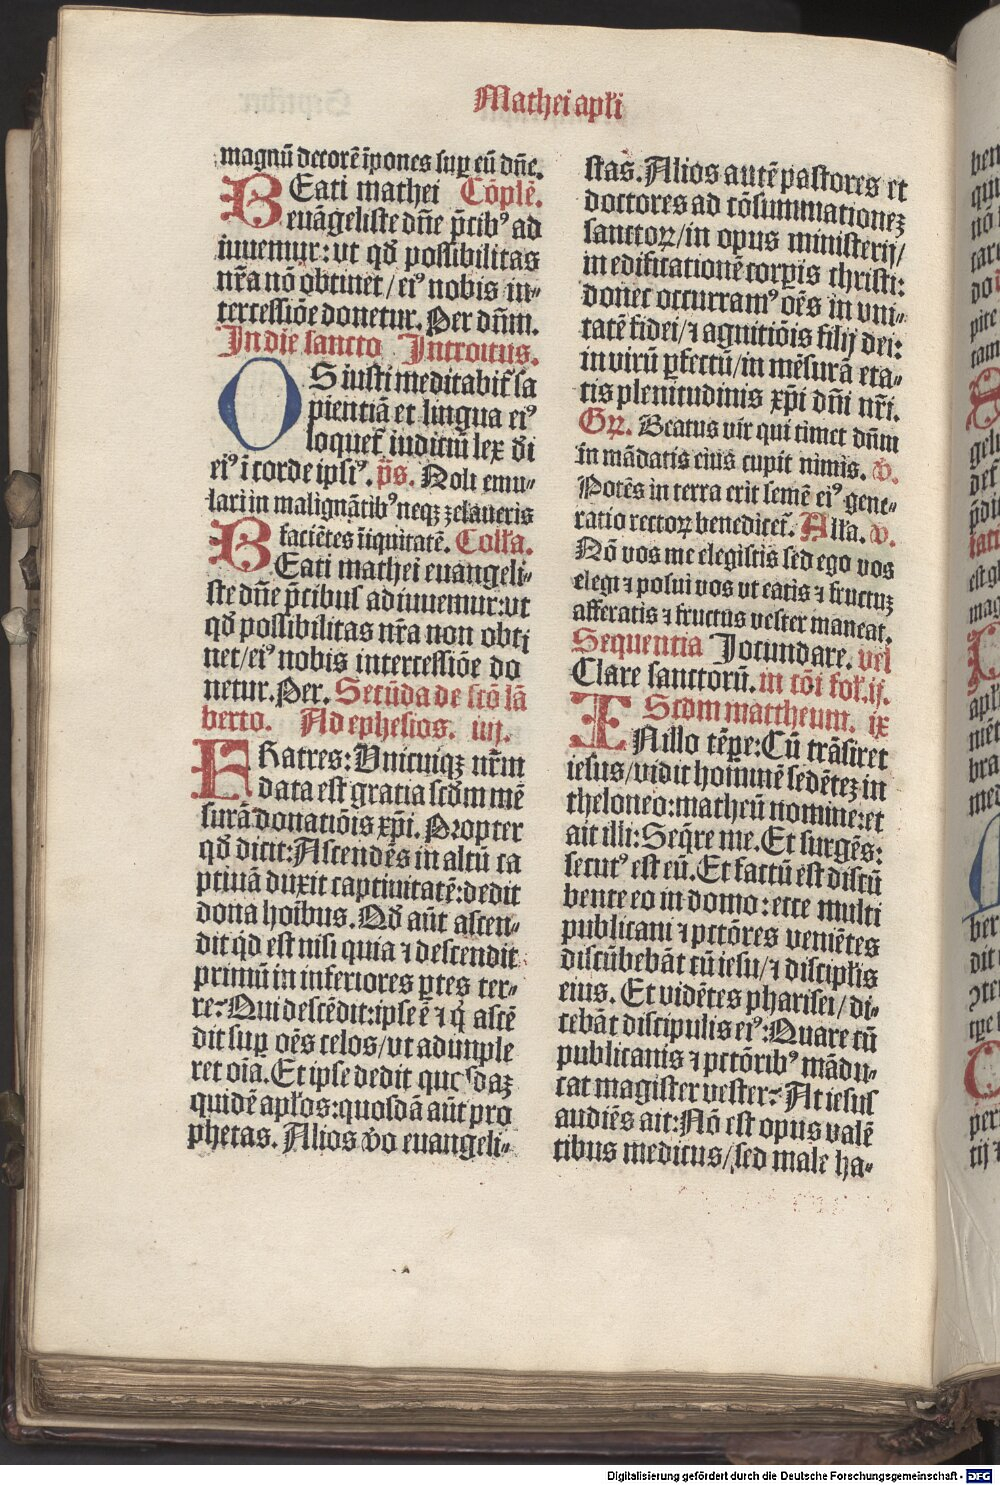 Mathei apłi
magnū decorē īpones suꝑ eū dn̄e.
BEati mathei Cōplē.
euāgeliste dn̄e p̄cibꝰ ad
iuuemur: vt qđ possibilitas
nr̄a nō obtinet/ eiꝰ nobis in⸗
tercessiōe donetur. Per dn̄m.
In die sancto Introitus.
OS iusti meditabit̄ sa
pientiā et lingua eiꝰ
loquet̄ iudiciū lex đi
eiꝰ ī corde ipsiꝰ. p̄s. Noli emu⸗
lari in malignātibꝰ neqꝫ zelaueris
faciētes īiquitatē. Coll̄a.
BEati mathei euangeli⸗
ste dn̄e p̄cibus adiuuemur: vt
qđ possibilitas nr̄a non obti
net/ eiꝰ nobis intercessiōe do
netur. Per. Secūda de scō lā
berto. Ad ephesios. iiij.
FRatres: Unicuiqꝫ nr̄m
data est gratia scđm mē
surā donatiōis xp̄i. Propter
qđ dicit: Ascendēs in altū ca
ptiuā duxit captiuitatē: dedit
dona hoībus. Qđ aūt ascen⸗
dit qđ est nisi quia ⁊ descendit
primū in inferiores ꝑtes ter⸗
re? Qui descēdit: ipse ē ⁊ qͥ ascē
dit suꝑ oēs celos/ vt adimple
ret oīa. Et ipse dedit quosdaꝫ
quidē apłos: quosdā aūt pro
phetas. Alios v̄o euangeli⸗
stas. Alios autē pastores et
doctores ad cōsummationeꝫ
sanctoꝝ/ in opus ministerij/
in edificationē corꝑis christi:
donec occurramꝰ oēs in vni⸗
tatē fidei/ ⁊ agnitiōis filij dei:
in virū ꝑfectū/ in mēsurā eta⸗
tis plenitudinis xp̄i dn̄i nr̄i.
Gꝝ. Beatus vir qui timet dn̄m
in mādatis eius cupit nimis. v̄.
Potēs in terra erit semē eiꝰ gene⸗
ratio rectoꝝ benedicet̄. All̄a. v̄.
Nō vos me elegistis sed ego vos
elegi ⁊ posui vos vt eatis ⁊ fructuꝫ
afferatis ⁊ fructus vester maneat.
Sequentia Jocundare. vel
Clare sanctōrū. in cōi fol. ij.
Scđm mattheum. ix
IN illo tēꝑe: Cū trāsiret
iesus/ vidit hominē sedēteꝫ in
theloneo: matheū nomine: et
ait illi: Seq̄re me. Et surgēs:
secutꝰ est eū. Et factū est discū
bente eo in domo: ecce multi
publicani ⁊ pctōres veniētes
discūbebāt cū iesu/ ⁊ discipl̄is
eius. Et vidētes pharisei/ di⸗
cebāt discipulis eiꝰ: Quare cū
publicanis ⁊ pctōribꝰ mādu⸗
cat magister vester? At iesus
audiēs ait: Nō est opus valē
tibus medicus/ sed male ha⸗
Digitalisierung gefördert durch die Deutsche Forschungsgemeinschaft - DFG